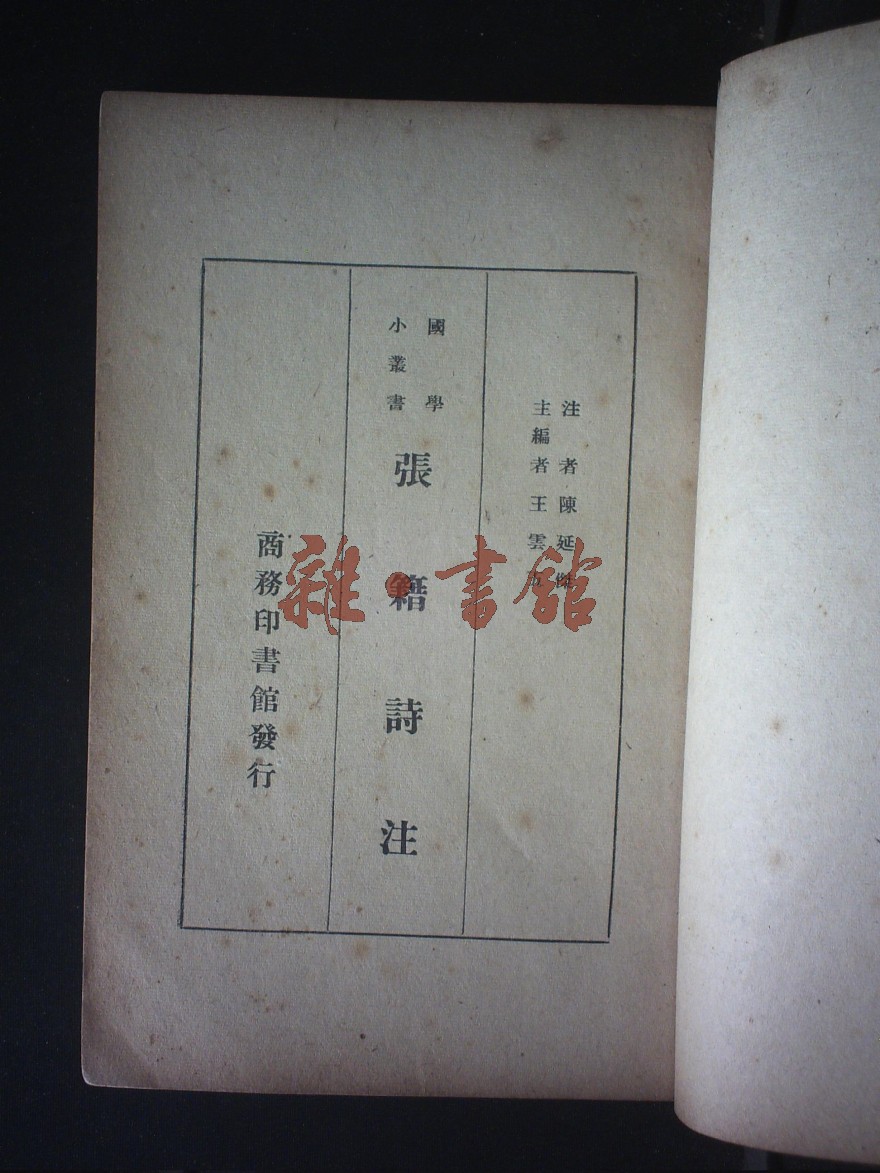 注者陳延傑
主編者王雲五
國學
小叢書
張籍詩注
商務印書館發行
雜·書館